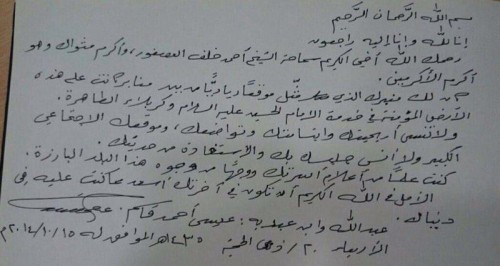 بسم الله الرحمان الرحيم
إنا لله وإنا إليه راجعون
رحمك الله أخي الكريم سماحة الشيخ أحمد خلف العصفور، وأكرم مثواك وهو
أكرم الأكرمين.
لك منبرك الذي مثّل موقعًا رياديًا من بين منابر كانت على هذه
الأرض المؤمنة في خدمة الإمام الحسين عليه السلام وكربلاء الطاهرة.
ولا تُنسى أريحيتك وابتسامتك وتواضعك، وموقعك الاجتماعي
الكبير ولا أنس جليسك بك والاستفادة من حديثك.
كنت علمًا من أعلام أسرتك ووجهًا من وجوه هذا البلد البارزة.
الأمل في الله الكريم أن تكون في آخرتك أسعد مما كنت عليه في
دنياك.
عبد الله وابن عبديه: عيسى أحمد قاسم
الأربعاء ٢٠/ذي الحجة ١٤٣٥هـ الموافق له ٢٠١٤/١٠/١٥م